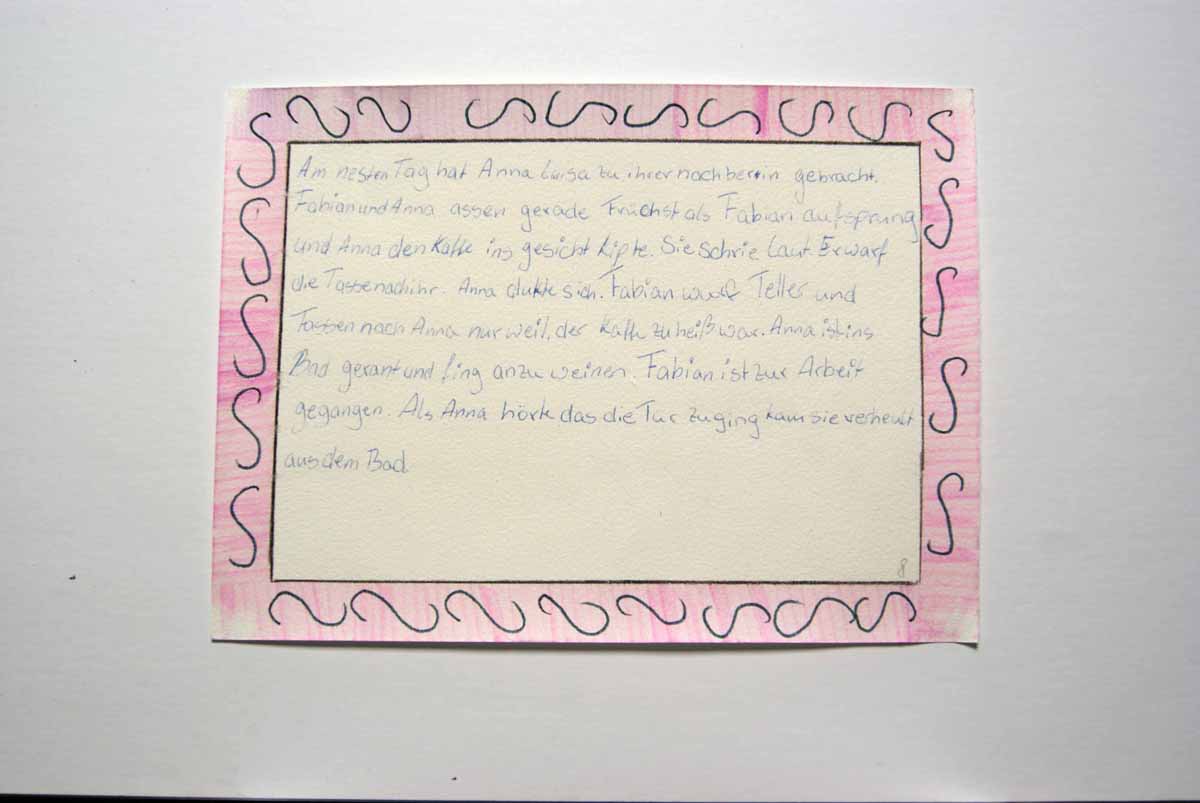 Am nesten Tag hat Anna Luisa zu ihrer nachberin gebracht.
Fabian und Anna assen gerade Früchst als Fabian aufsprung
und Anna den Kaffe ins gesicht kipte. Sie schrie laut. Er warf
die Tasse nach ihr. Anna dukte sich. Fabian warf Teller und
Tassen nach Anna nur weil, der Kaffe zu heiß war. Anna ist ins
Bad gerant und fing an zu weinen. Fabian ist zur Arbeit
gegangen. Als Anna hörte das die Tür zu ging kam sie verheult
aus dem Bad.
8